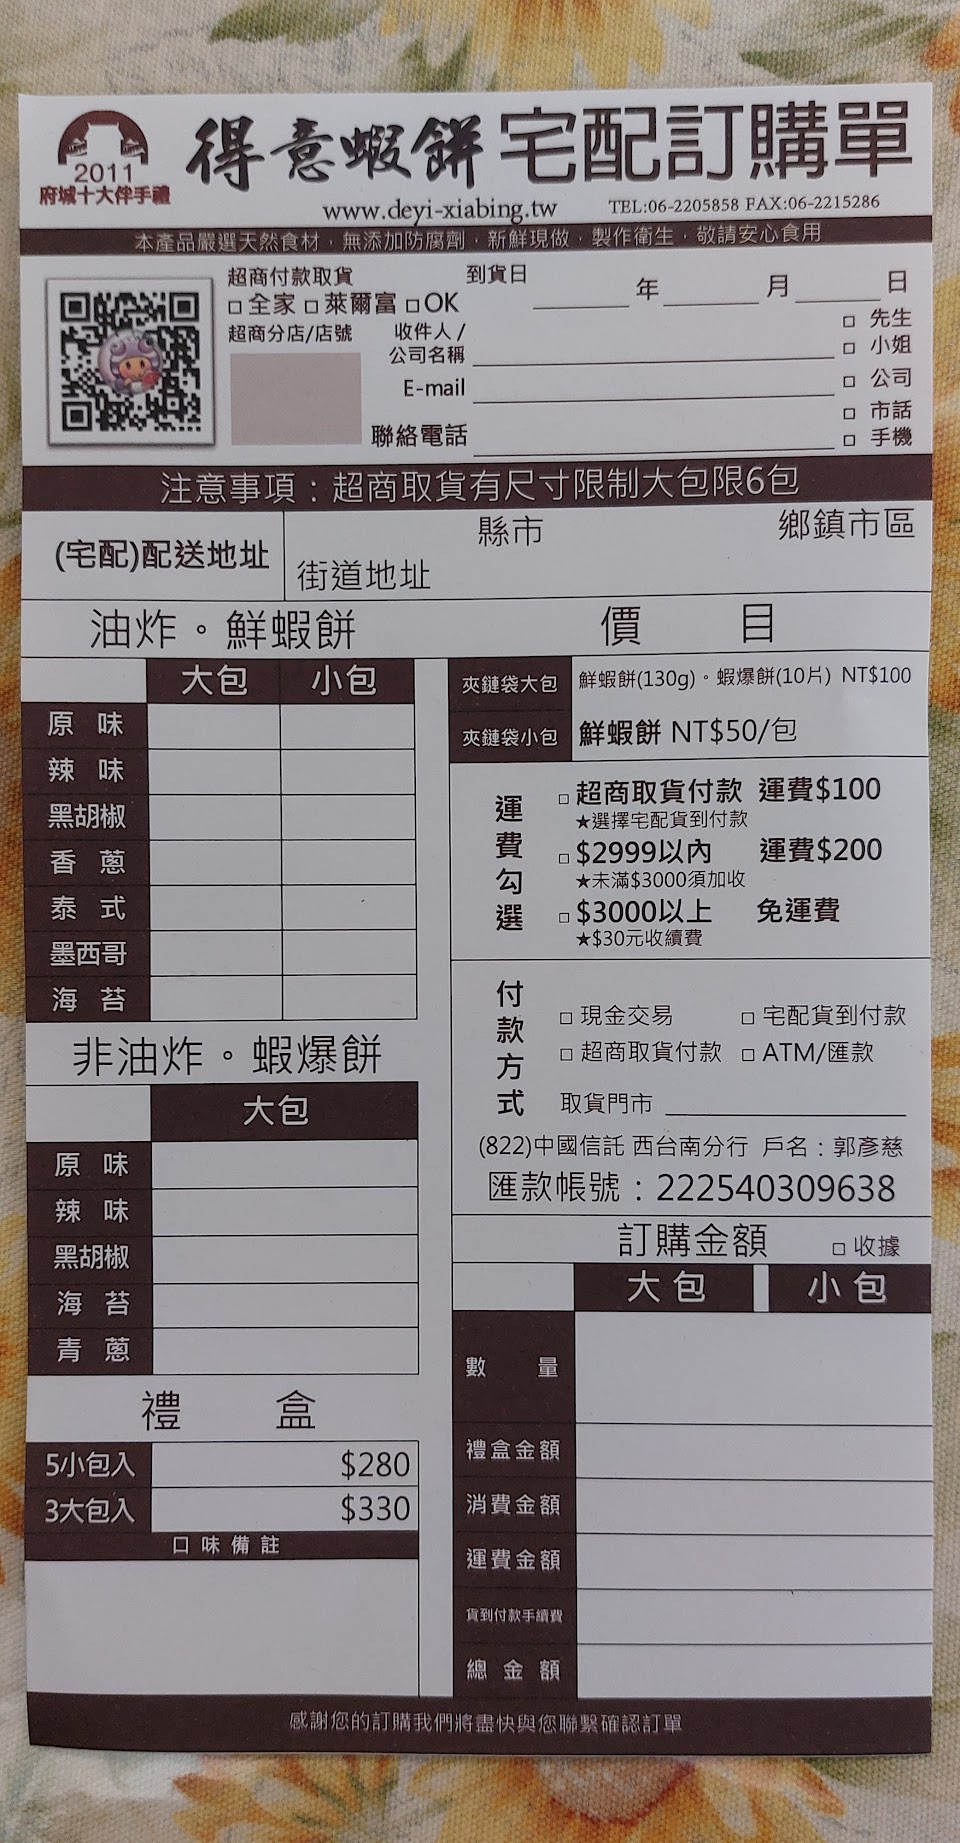 2011
府城十大伴手禮
得意蝦餅 宅配訂購單
www.deyi-xiabing.tw TEL:06-2205858 FAX:06-2215286
本產品嚴選天然食材，無添加防腐劑，新鮮現做，製作衛生，敬請安心食用
超商付款取貨
□全家 □萊爾富 □OK
超商分店/店號
到貨日 年 月 日
收件人/
公司名稱
□ 先生
□ 小姐
□ 公司
E-mail
聯絡電話
□ 市話
□ 手機
注意事項：超商取貨有尺寸限制大包限6包
(宅配)配送地址
縣市 鄉鎮市區
街道地址
油炸。鮮蝦餅
大包 小包
原味
辣味
黑胡椒
香蔥
泰式
墨西哥
海苔
非油炸。蝦爆餅
大包
原味
辣味
黑胡椒
海苔
青蔥
禮盒
5小包入 $280
3大包入 $330
口味備註
價目
夾鏈袋大包 鮮蝦餅(130g)。蝦爆餅(10片) NT$100
夾鏈袋小包 鮮蝦餅 NT$50/包
運費勾選
□超商取貨付款 運費$100
★選擇宅配貨到付款
□$2999以內 運費$200
★未滿$3000須加收
□$3000以上 免運費
★$30元收續費
付款方式
□ 現金交易 □ 宅配貨到付款
□ 超商取貨付款 □ ATM/匯款
取貨門市
(822)中國信託 西台南分行 戶名：郭彥慈
匯款帳號：222540309638
訂購金額 □收據
大包 小包
數量
禮盒金額
消費金額
運費金額
貨到付款手續費
總金額
感謝您的訂購我們將盡快與您聯繫確認訂單